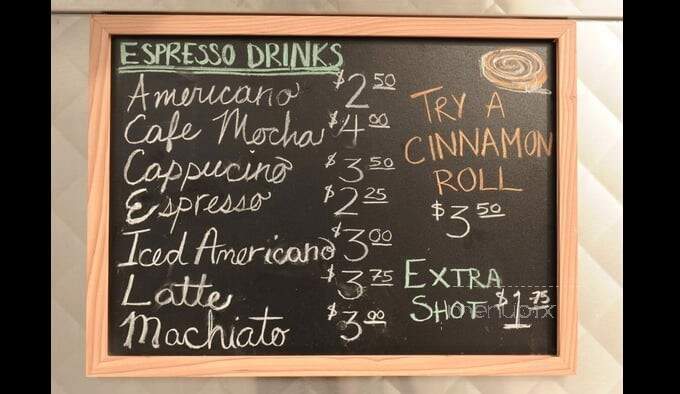 ESPRESSO DRINKS
Americano $2.50
Cafe Mocha $4.00
Cappucino $3.50
Espresso $2.25
Iced Americano $3.00
Latte $3.75
Machiato $3.00
TRY A
CINNAMON
ROLL
$3.50
EXTRA
SHOT $1.75
menupix